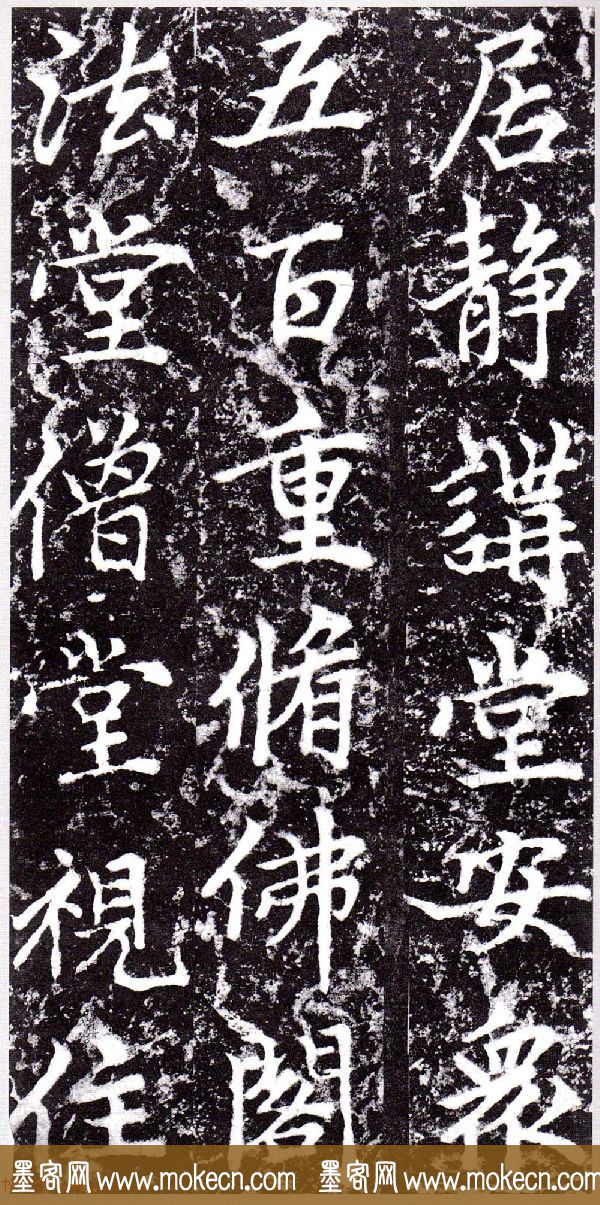 居静講堂安衆
五百重脩佛閣
法堂僧堂視住
墨客网 www.mokecn.com 墨客网 www.mokecn.com